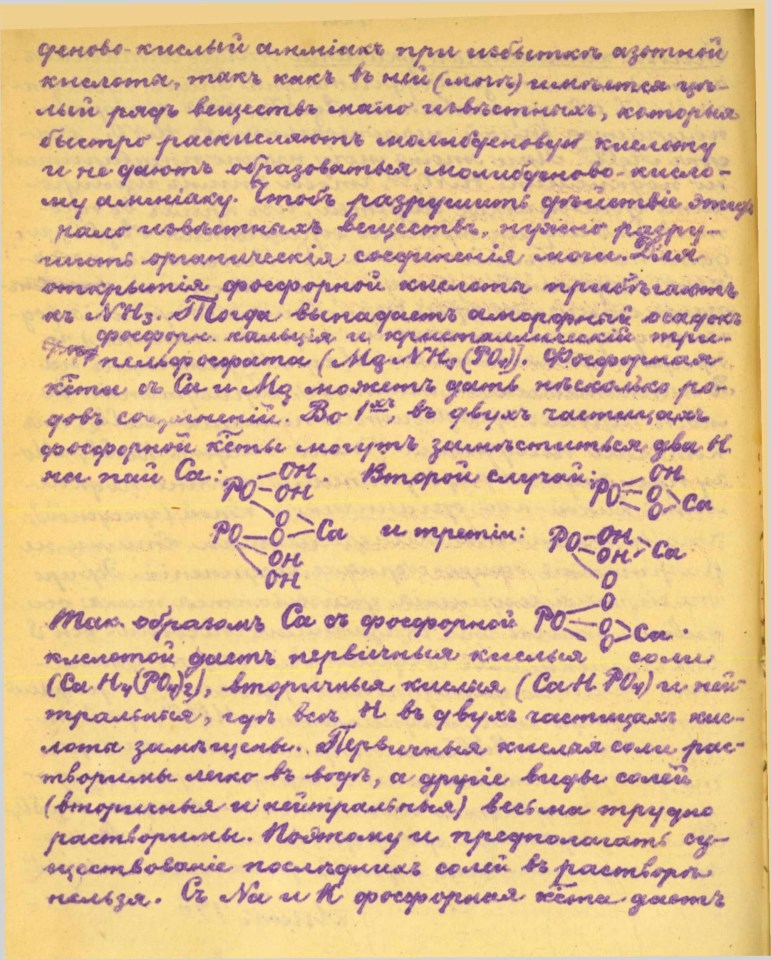 деново-кислый амміакъ при избыткѣ азотной
кислоты, такъ какъ въ ней (мочѣ) имѣется цѣ-
лый рядъ веществъ мало извѣстныхъ, которыя
быстро раскисляютъ молибденовую кислоту
и не даютъ образоваться молибденово-кисло-
му амміаку. Чтобъ разрушить дѣйствіе этихъ
мало извѣстныхъ веществъ, нужно разру-
шить органическія соединенія мочи. Для
открытія фосфорной кислоты прибѣгаютъ
къ NH3. Тогда выпадаетъ аморфный осадокъ
фосфорн. кальція и кристаллическій три-
пельфосфата (MgNH4(PO4)). Фосфорная
к̄ѣта съ Ca и Mg можетъ дать нѣсколько ро-
довъ соединеній. Во 1хъ, въ двухъ частицахъ
фосфорной к̄ѣты могутъ замѣститься два H
на пай Ca: Второй случай:
OH
PO OH
O
O Ca
PO
OH
OH
OH
PO O Ca
O
и третій:
PO OH
OH Ca
O
O
PO O Ca
O
Так. образомъ Ca съ фосфорной
кислотой даетъ первичныя кислыя соли
(CaH4(PO4)2), вторичныя кислыя (CaHPO4) и ней-
тральныя, гдѣ всѣ H въ двухъ частицахъ кис-
лоты замѣщены. Первичныя кислыя соли рас-
творимы легко въ водѣ, а другіе виды солей
(вторичныя и нейтральныя) весьма трудно
растворимы. Поэтому и предполагать су-
ществованіе послѣднихъ солей въ растворѣ
нельзя. Съ Na и K фосфорная к̄ѣта даетъ